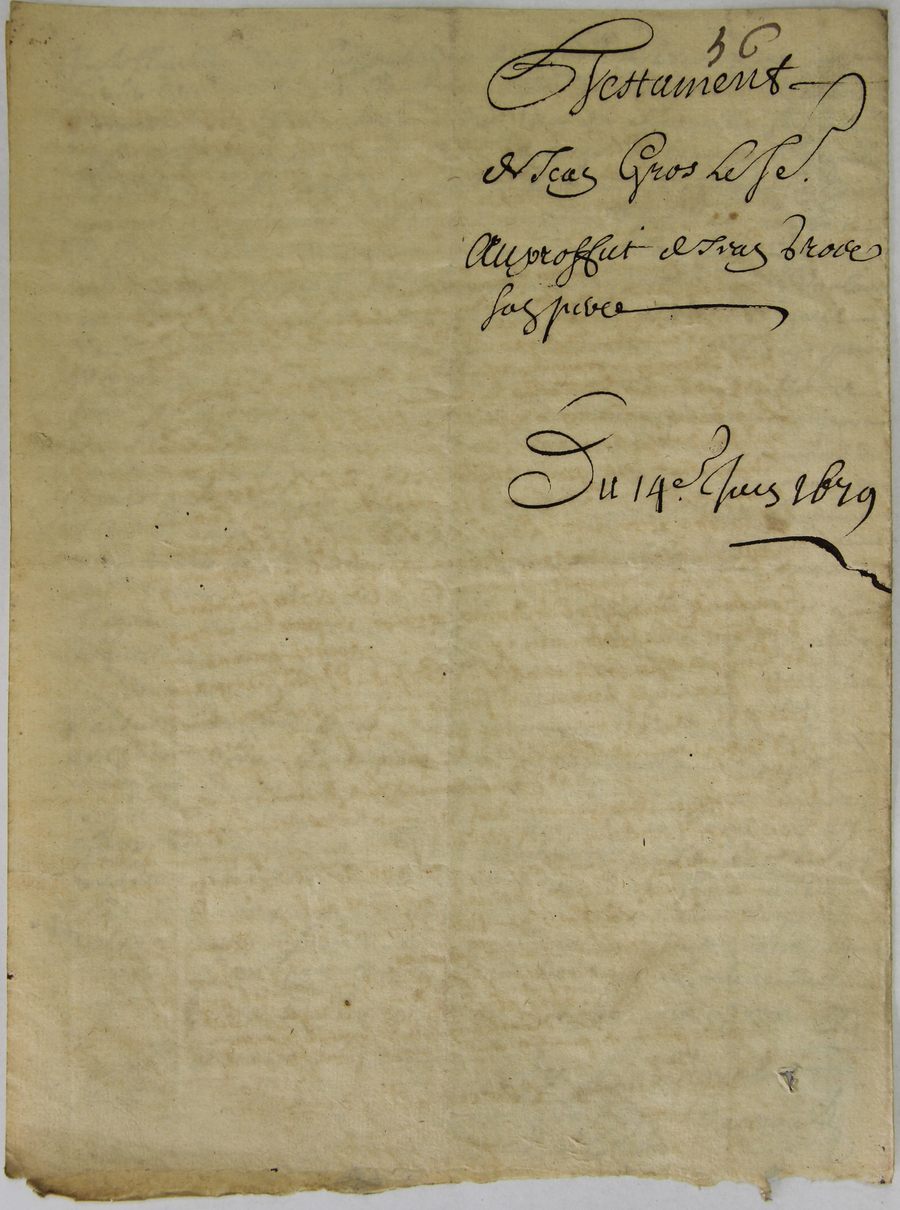 56
Testament
de Jean Gros le Je.
Au proffit de Jean
son pere
Du 14e. Juin 1679